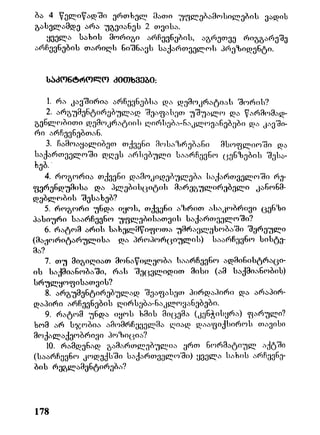 ბა 4 წელიწადში ერთხელ მათი უფლებამოსილების ვადის
გასვლამდე არა უგვიანეს 2 თვისა.
ყველა სახის მორიგი არჩევნების, აგრეთვე რიგგარეშე
არჩევნების თარიღს ნიშნავს საქართველოს პრეზიდენტი.
საკონტროლო კითხვები:
1. რა კავშირია არჩევნებსა და დემოკრატიას შორის?
2. არგუმენტირებულად შეაფასეთ უშუალო და წარმომად-
გენლობითი დემოკრატიის ღირსება-ნაკლოვანებები და კავში-
რი არჩევნებთან.
3. ჩამოაყალიბეთ თქვენი მოსაზრებანი მსოფლიოში და
საქართველოში დღეს არსებული საარჩევნო ცენზების შესა-
ხებ.
4. როგორია თქვენი დამოკიდებულება საქართველოში რე-
ფერენდუმისა და პლებისციტის მარეგულირებელი კანონმ-
დებლობის შესახებ?
5. როგორი უნდა იყოს, თქვენი აზრით ასაკობრივი ცენზი
პასიური საარჩევნო უფლებისათვის საქართველოში?
6. რატომ არის სახელმწიფოთა უმრავლესობაში შერეული
(მაჟორიტარულისა და პროპორციულის) საარჩევნო სისტე-
მა?
7. თუ მიგიღიათ მონაწილეობა საარჩევნო ადმინისტრაცი-
ის საქმიანობაში, რას შეცვლიდით მისი (ამ საქმიანობის)
სრულყოფისათვის?
8. არგუმენტირებულად შეაფასეთ პირდაპირი და არაპირ-
დაპირი არჩევნების ღირსება-ნაკლოვანებები.
9. რატომ უნდა იყოს ხმის მიცემა (კენჭისყრა) ფარული?
ხომ არ სჯობია ამომრჩეველმა ღიად დააფიქსიროს თავისი
მოქალაქეობრივი პოზიცია?
10. რამდენად გამართლებულია ერთ ნორმატიულ აქტში
(საარჩევნო კოდექსში საქართველოში) ყველა სახის არჩევნე-
ბის რეგლამენტირება?
178